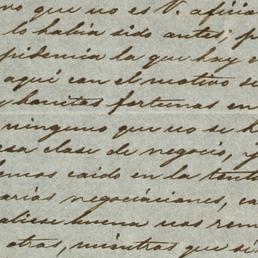 vo que no es V. aficio
lo habia sido antes, p
pidemia la que hay e
aquí con el motivo s
y bonitas fortunas en
ninguno que no se h
esa clase de negocio,
emos caido en la tent
arias negociaciones, ca
aliese buena nos rem
otras, mientras que si